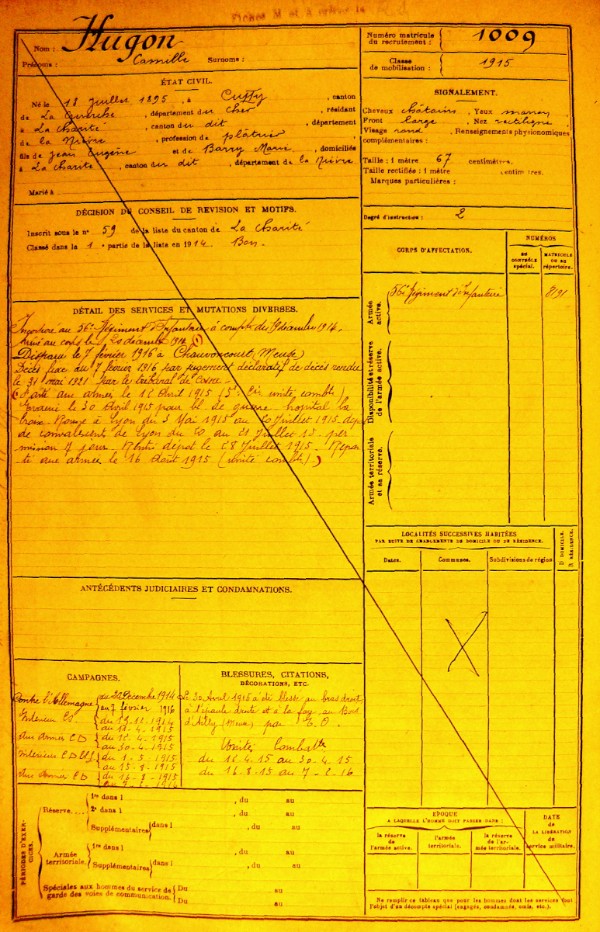 Nom : Hugon
Prénoms : Camille Surnoms :
Numéro matricule du recrutement : 1009
Classe de mobilisation : 1915
ÉTAT CIVIL.
Né le 18 Juillet 1895, à Cuffy, canton
de La Guerche, département du Cher, résidant
à La Charité, canton du dit, département
de la Nièvre, profession de plâtrier
fils de Jean Eugène et de Barry Marie, domiciliés
à La Charité, canton du dit, département de la Nièvre
Marié à
SIGNALEMENT.
Cheveux châtains, Yeux marron
Front large, Nez rectiligne
Visage rond, Renseignements physionomiques
complémentaires :
Taille : 1 mètre 67 centimètres.
Taille rectifiée : 1 mètre centimètres.
Marques particulières :
Degré d'instruction : 2
DÉCISION DU CONSEIL DE REVISION ET MOTIFS.
Inscrit sous le n° 59 de la liste du canton de La Charité
Classé dans la 1e partie de la liste en 1914 Bon
CORPS D'AFFECTATION.
NUMÉROS
AU CONTRÔLE spécial.
MATRICULE OU AU RÉPERTOIRE.
Armée active.
56e Régiment d'Infanterie
Disponibilité et réserve de l'armée active.
Armée territoriale et sa réserve.
DÉTAIL DES SERVICES ET MUTATIONS DIVERSES.
Incorporé au 56e Régiment d'Infanterie à compter du décembre 1914.
Arrivé au corps le décembre 1914
Disparu le 7 février 1916 à Chauvoncourt, Meuse
Décès fixé au 7 février 1916 par jugement déclaratif de décès rendu
le 31 mai 1921 par le tribunal de Cosne
Parti aux armées le 12 Avril 1915 (unité combte)
Evacué le 30 Avril 1915 pour bl. de guerre hopital
à Lyon du 3 Mai 1915 au 20 Juillet 1915 depot
de convalescents de Lyon du 20 au 21 Juillet 15 per
mission 7 jours. Rentré dépot le 28 Juillet 1915. Repar
ti aux armées le 16 Août 1915 (unité combte)
LOCALITÉS SUCCESSIVES HABITÉES
PAR SUITE DE CHANGEMENTS DE DOMICILE OU DE RÉSIDENCE.
Dates. Communes. Subdivisions de région. D DOMICILE. R RÉSIDENCE.
ANTÉCÉDENTS JUDICIAIRES ET CONDAMNATIONS.
CAMPAGNES.
Contre l'Allemagne du Décembre 1914
au 7 février 1916
Intérieur CS du 1914
au 11-4-1915
Aux Armées CD du 12-4-1915
au 30-4-1915
Intérieur CD du 1-5-1915
au 15-8-1915
Aux Armées CD du 16-8-1915
BLESSURES, CITATIONS, DÉCORATIONS, ETC.
Le 30 Avril 1915 a été blessé au bras droit
à l'épaule droite et à la face au Bois
d'Ailly (Meuse) par E.O.
Unité Combatte
du 12.4.15 au 30.4.15
du 16.8.15 au 7-2-16
PÉRIODES D'EXERCICES.
Réserve.
1re dans l , du au
2e dans l , du au
Supplémentaires dans l , du au
Armée territoriale.
1re dans l , du au
Supplémentaires dans l , du au
Spéciales aux hommes du service de garde des voies de communication.
Du au
Du au
ÉPOQUE
A LAQUELLE L'HOMME DOIT PASSER DANS :
la réserve de l'armée active.
l'armée territoriale.
la réserve de l'armée territoriale.
DATE de LA LIBÉRATION du service militaire.
Ne remplir ce tableau que pour les hommes dont les services font
l'objet d'un décompte spécial (engagés, condamnés, omis, etc.).